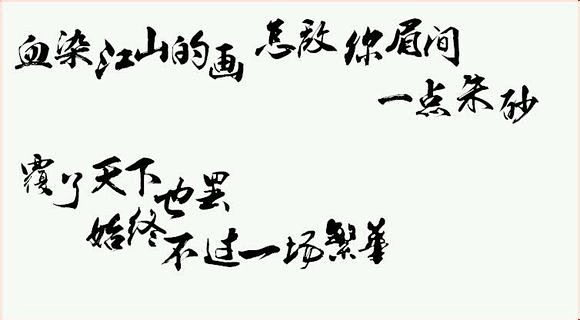 血染江山的画 怎敌你眉间
一点朱砂
覆了天下也罢
始终不过一场繁华